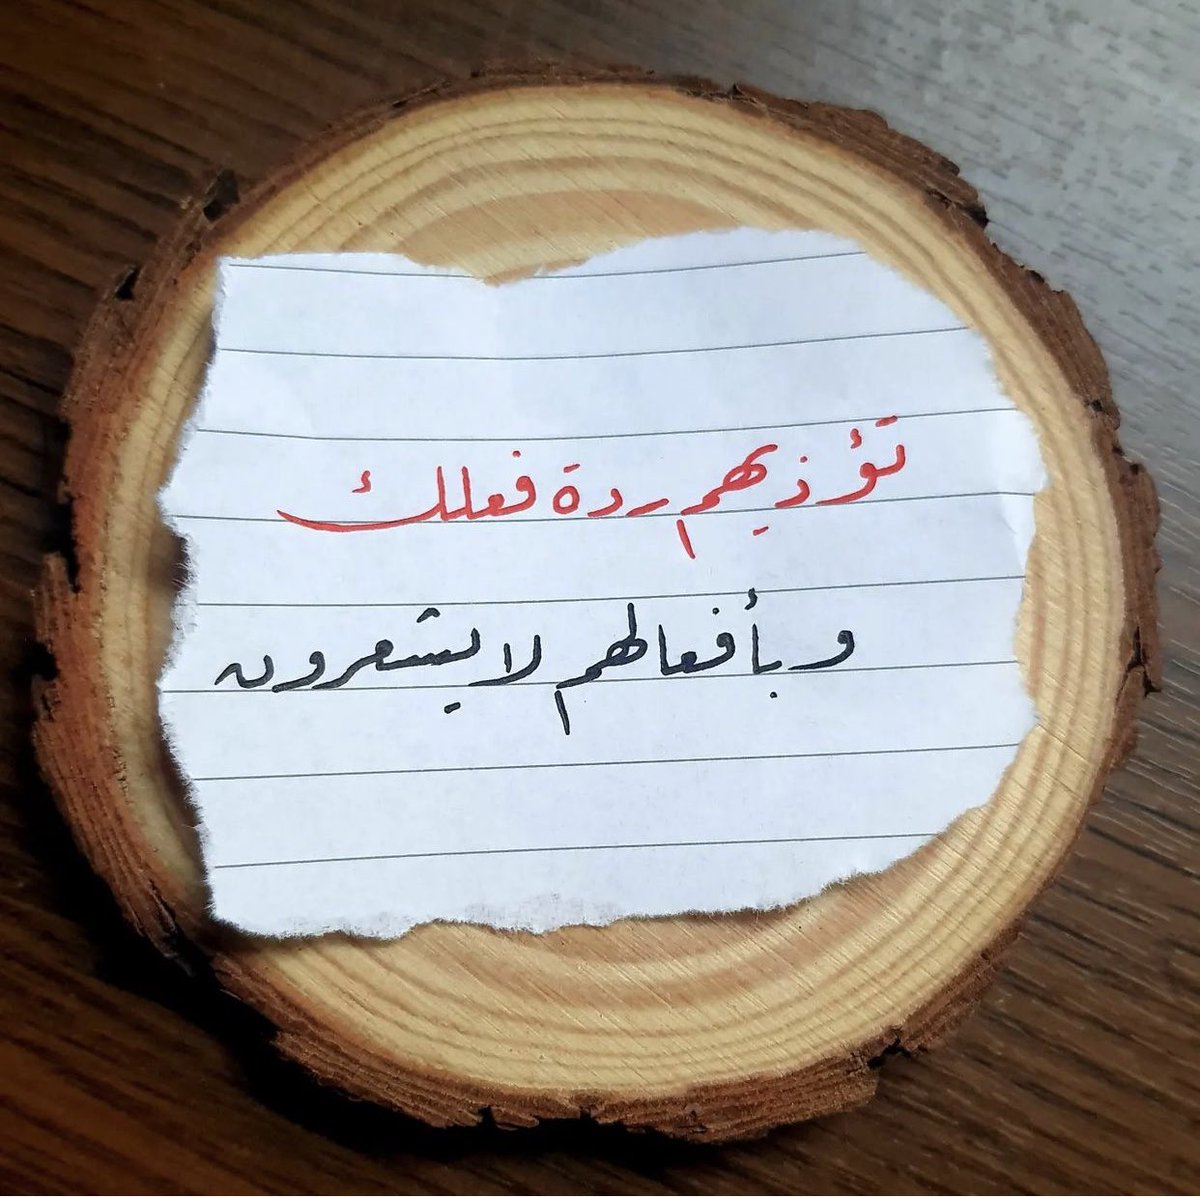 تؤذيهم ردة فعلك
وبأفعالهم لا يشعرون